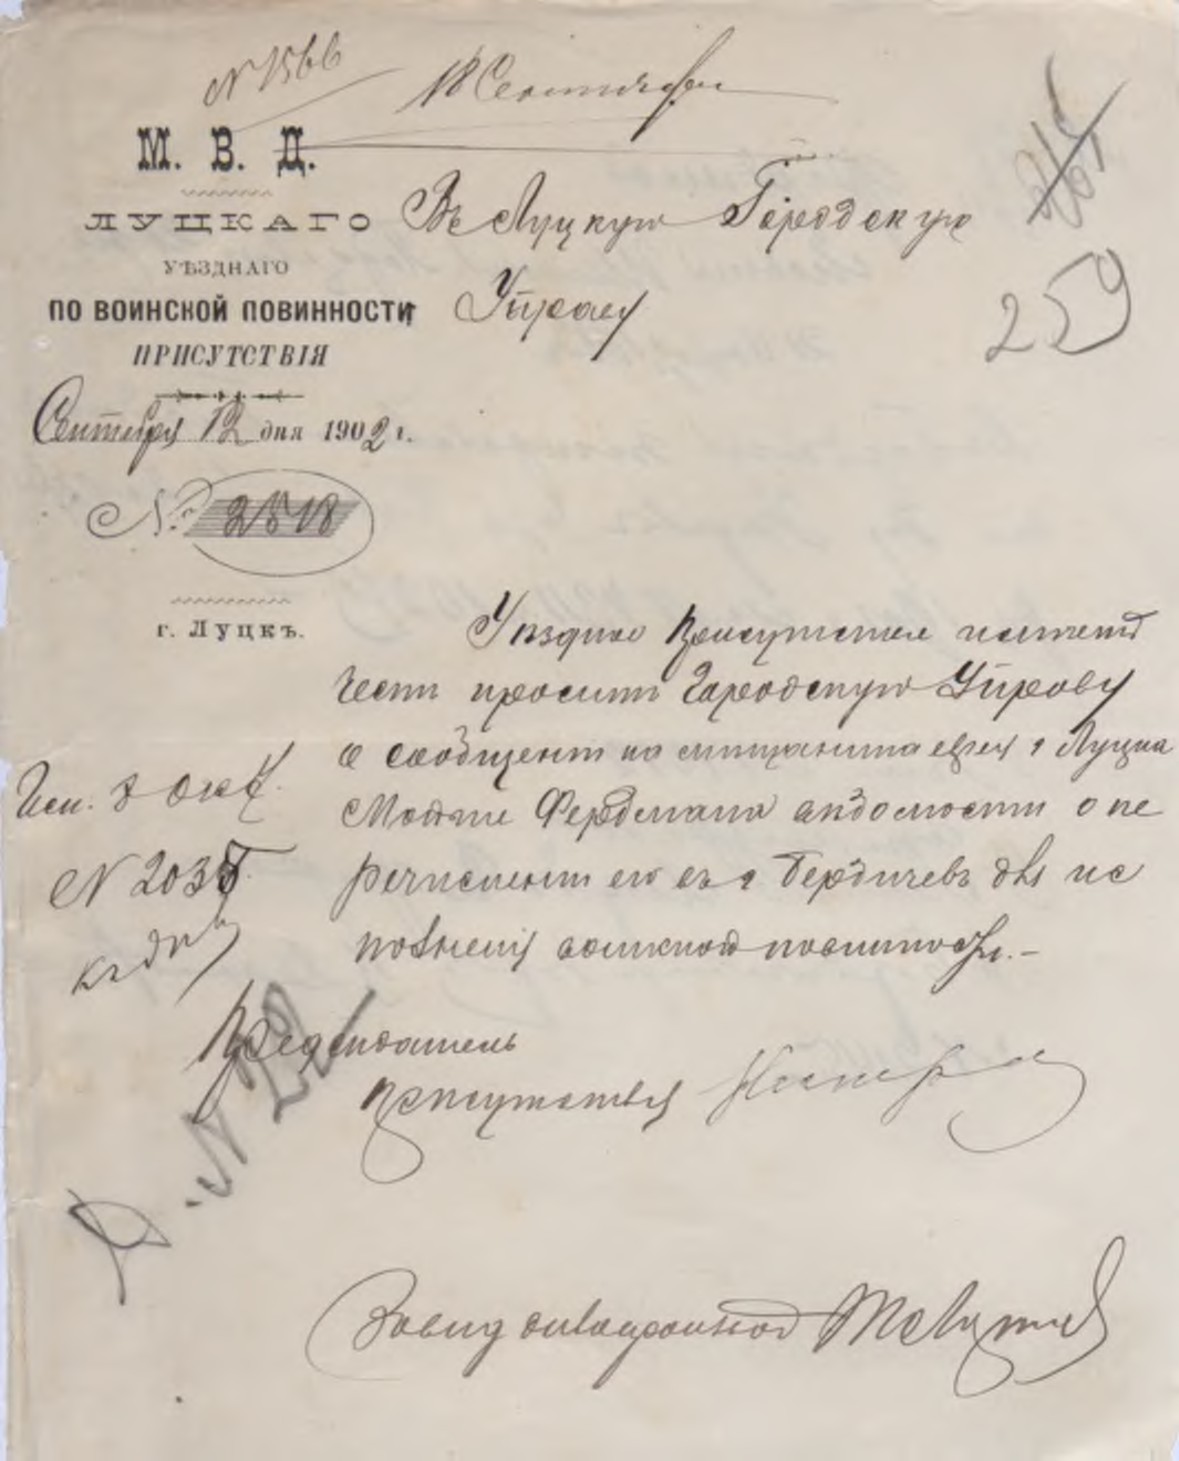 N 1566
18 Сентября
М. В. Д.
ЛУЦКАГО
УѢЗДНАГО
ПО ВОИНСКОЙ ПОВИННОСТИ
ПРИСУТСТВІЯ
Сентября 12 дня 1902 г.
№ 2518
г. ЛУЦКЪ.
Въ Луцкую Городскую
Управу
259
Уѣздное Присутствіе имѣетъ
честь просить Городскую Управу
о сообщеніи на мѣщанина еврея г Луцка
Фердмана вѣдомости о пе
речисленіи его въ г Бердичевъ для ис
полненія воинской повинности.-
Исп. 8 Окт.
N 2035
къ дѣлу
Предсѣдатель
Присутствія
N 22